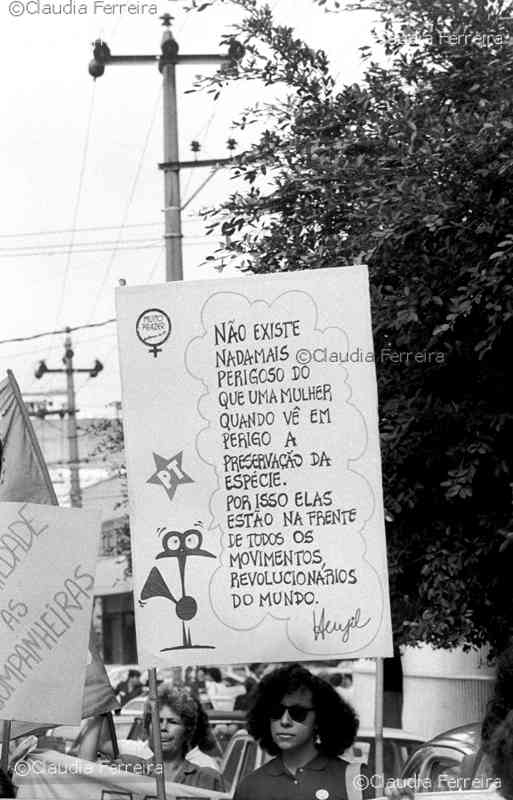 ©Claudia Ferreira
©Claudia Ferreira
MUITO
PRAZER
NÃO EXISTE
NADA MAIS
PERIGOSO DO
QUE UMA MULHER
QUANDO VÊ EM
PERIGO A
PRESERVAÇÃO DA
ESPÉCIE.
POR ISSO ELAS
ESTÃO NA FRENTE
DE TODOS OS
MOVIMENTOS
REVOLUCIONÁRIOS
DO MUNDO.
Henfil
PT
©Claudia Ferreira
AS
COMPANHEIRAS
©Claudia Ferreira
©Claudia Ferreira